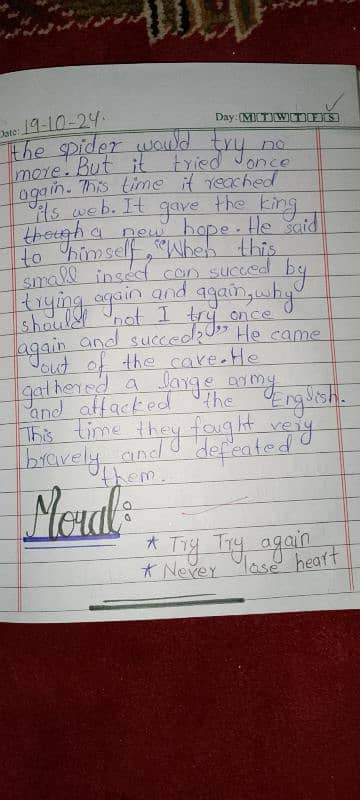 Date: 19-10-24. Day: M T W T F S
the spider would try no
more. But it tried once
again. This time it reached
its web. It gave the king
though a new hope. He said
to himself, "When this
small insect can succed by
trying again and again, why
should not I try once
again and succed?" He came
out of the cave. He
gathered a large army
and attacked the English.
This time they fought very
bravely and defeated
them.
Moral:
* Try Try again
* Never lose heart